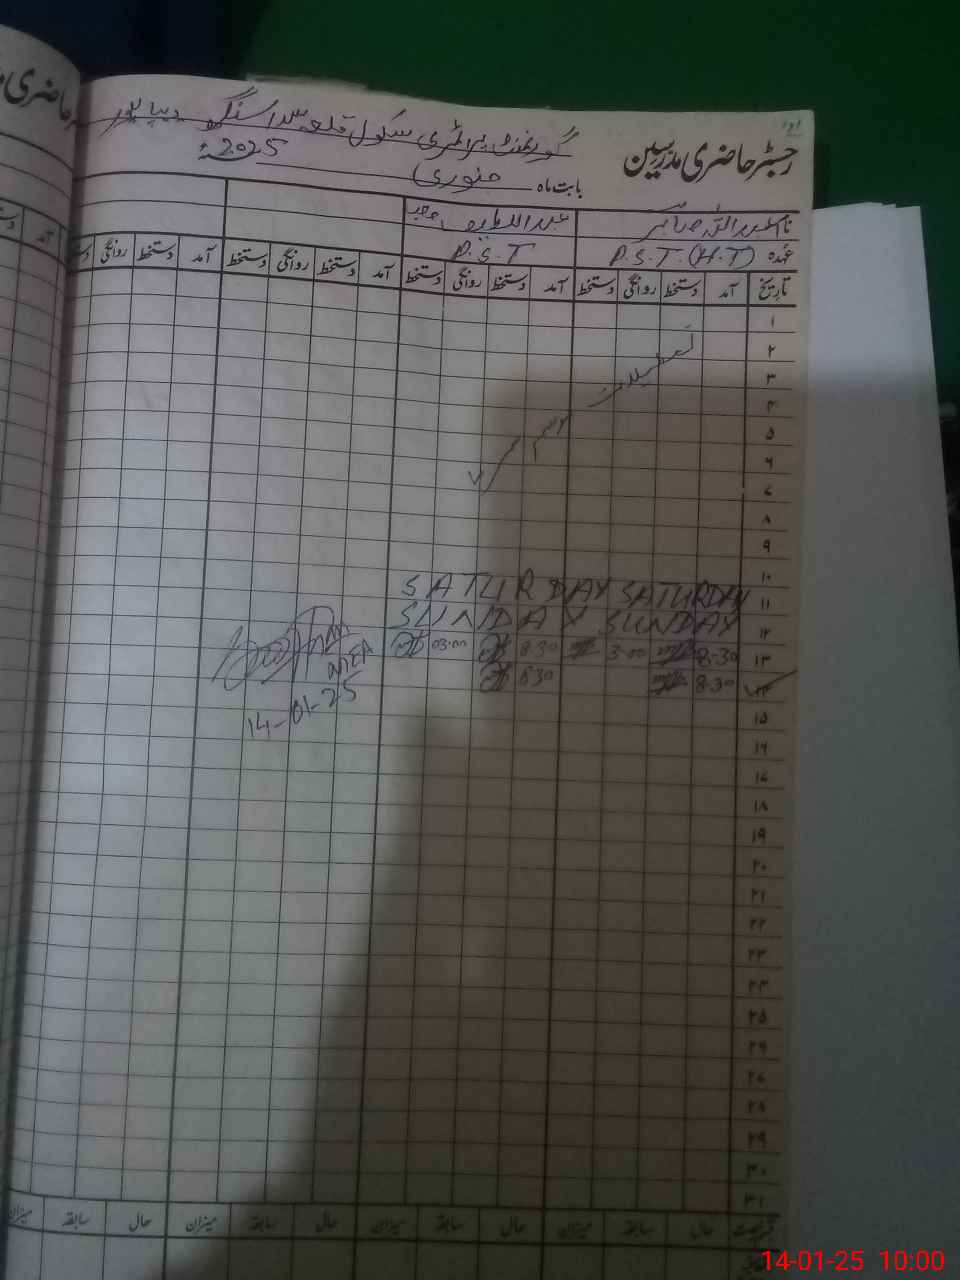 رجسٹر حاضری مدرسین
گورنمنٹ پرائمری سکول قلعہ سنگھ دیپالپور
بابت ماہ جنوری 2025
نام عبداللہ صابر عبداللطیف
عہدہ P.S.T.(H.T) P.S.T
تاریخ آمد دستخط روانگی دستخط آمد دستخط روانگی دستخط آمد دستخط روانگی دستخط آمد دستخط روانگی
۱
۲ تعطیلات
۳
۴
۵ موسم سرما
۶
۷
۸
۹
۱۰
۱۱ SATURDAY SATURDAY
۱۲ SUNDAY SUNDAY
۱۳ 8-30 3-00 8-30 03-00
۱۴ 8-30 8-30
AEA
14-01-25
۱۵
۱۶
۱۷
۱۸
۱۹
۲۰
۲۱
۲۲
۲۳
۲۴
۲۵
۲۶
۲۷
۲۸
۲۹
۳۰
۳۱
قسم رخصت حال سابقہ میزان حال سابقہ میزان حال سابقہ میزان حال سابقہ میزان
14-01-25 10:00